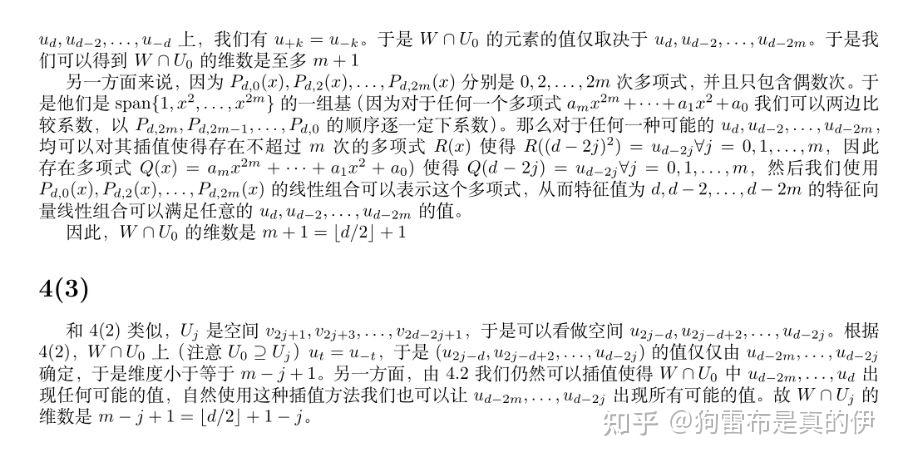 u_d, u_{d−2}, . . . , u_{−d} 上，我们有 u_{+k} = u_{−k}。于是 W ∩ U_0 的元素的值仅取决于 u_d, u_{d−2}, . . . , u_{d−2m}。于是我
们可以得到 W ∩ U_0 的维数是至多 m + 1
另一方面来说，因为 P_{d,0}(x), P_{d,2}(x), . . . , P_{d,2m}(x) 分别是 0, 2, . . . , 2m 次多项式，并且只包含偶数次。于
是他们是 span{1, x^2, . . . , x^{2m}} 的一组基（因为对于任何一个多项式 a_m x^{2m} + · · · + a_1 x^2 + a_0 我们可以两边比
较系数，以 P_{d,2m}, P_{d,2m−1}, . . . , P_{d,0} 的顺序逐一定下系数）。那么对于任何一种可能的 u_d, u_{d−2}, . . . , u_{d−2m},
均可以对其插值使得存在不超过 m 次的多项式 R(x) 使得 R((d − 2j)^2) = u_{d−2j}∀j = 0, 1, . . . , m，因此
存在多项式 Q(x) = a_m x^{2m} + · · · + a_1 x^2 + a_0) 使得 Q(d − 2j) = u_{d−2j}∀j = 0, 1, . . . , m，然后我们使用
P_{d,0}(x), P_{d,2}(x), . . . , P_{d,2m}(x) 的线性组合可以表示这个多项式，从而特征值为 d, d − 2, . . . , d − 2m 的特征向
量线性组合可以满足任意的 u_d, u_{d−2}, . . . , u_{d−2m} 的值。
因此，W ∩ U_0 的维数是 m + 1 = ⌊d/2⌋ + 1
4(3)
和 4(2) 类似，U_j 是空间 v_{2j+1}, v_{2j+3}, . . . , v_{2d−2j+1}，于是可以看做空间 u_{2j−d}, u_{2j−d+2}, . . . , u_{d−2j}。根据
4(2)，W ∩ U_0 上（注意 U_0 ⊇ U_j）u_t = u_{−t}，于是 (u_{2j−d}, u_{2j−d+2}, . . . , u_{d−2j}) 的值仅仅由 u_{d−2m}, . . . , u_{d−2j}
确定，于是维度小于等于 m − j + 1。另一方面，由 4.2 我们仍然可以插值使得 W ∩ U_0 中 u_{d−2m}, . . . , u_d 出
现任何可能的值，自然使用这种插值方法我们也可以让 u_{d−2m}, . . . , u_{d−2j} 出现所有可能的值。故 W ∩ U_j 的
维数是 m − j + 1 = ⌊d/2⌋ + 1 − j。
知乎 @狗雷布是真的伊